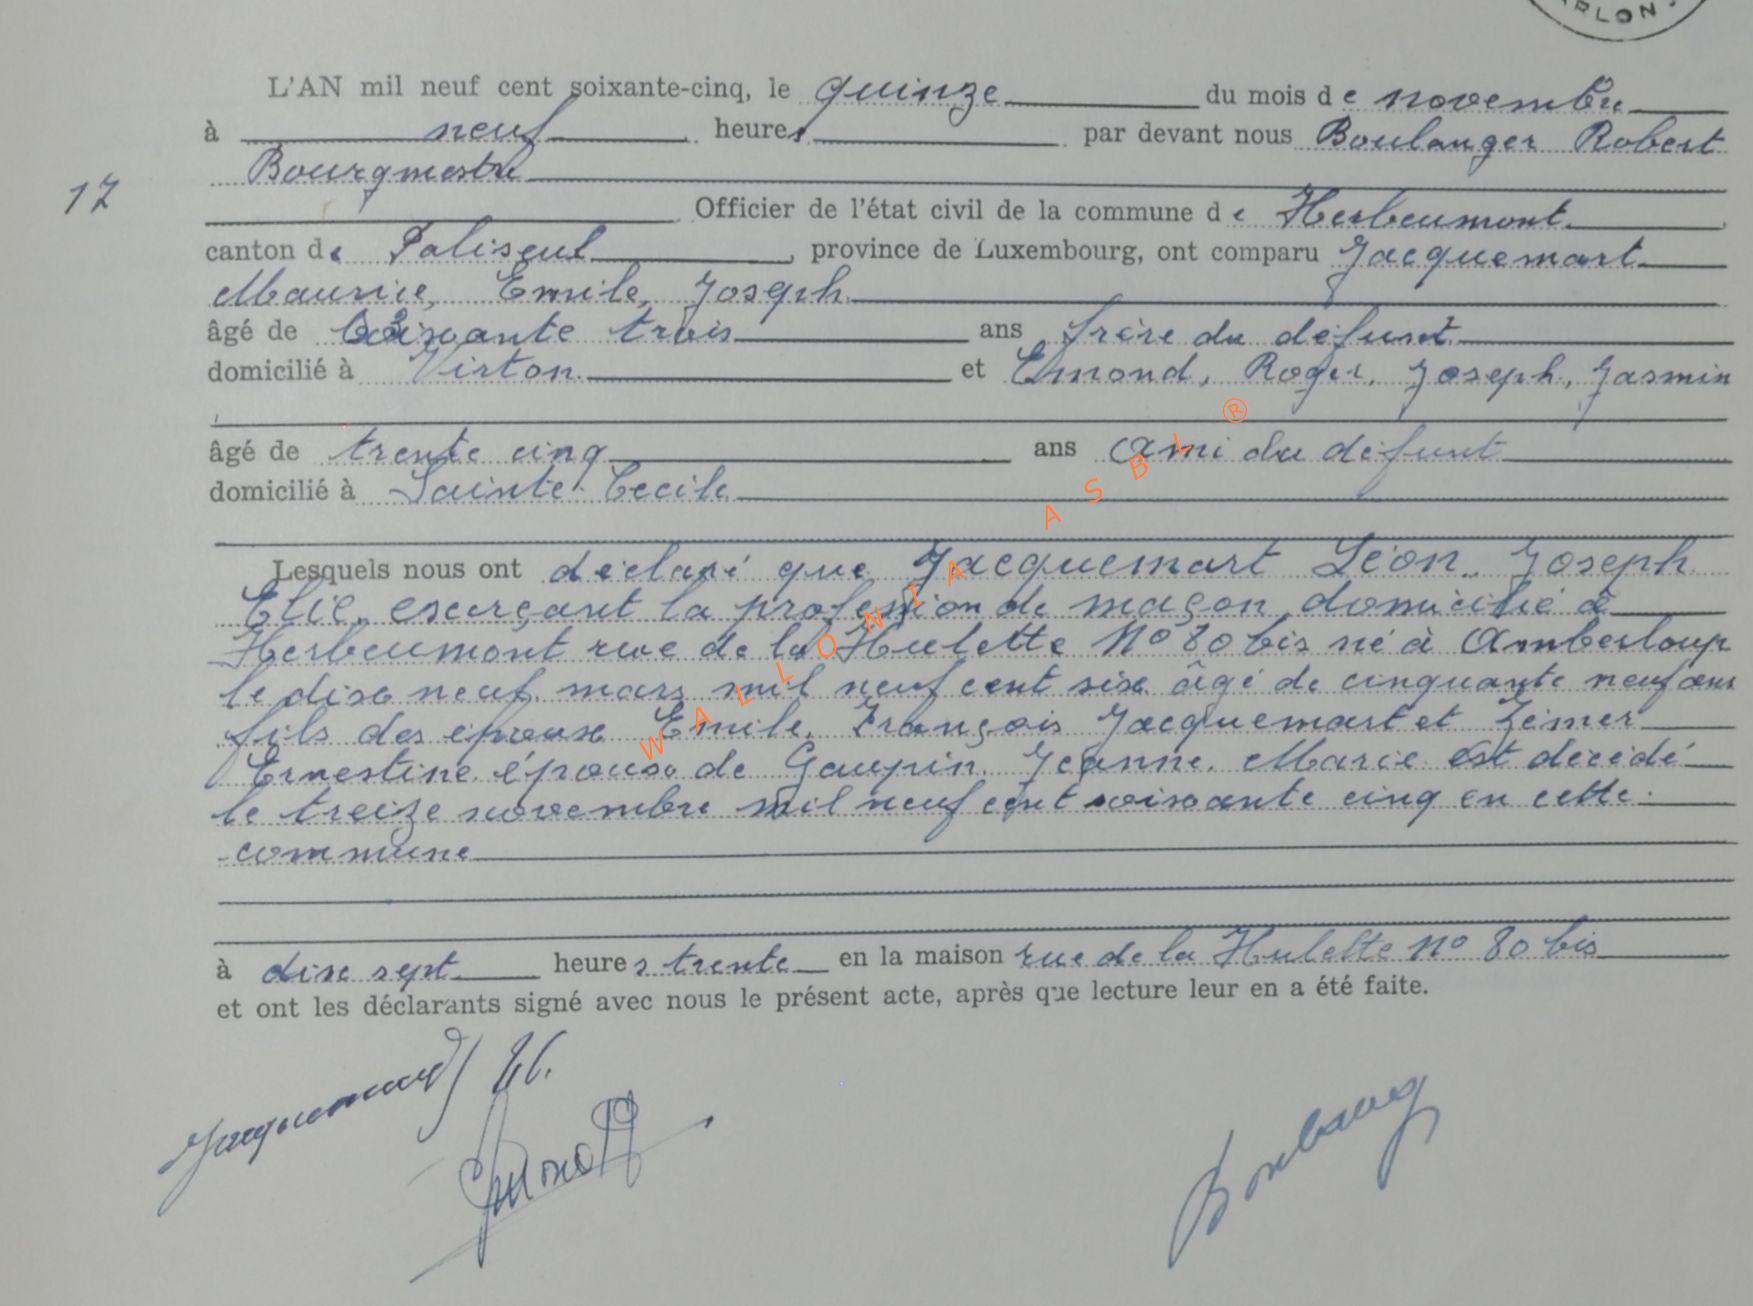 ARLON
L'AN mil neuf cent soixante-cinq, le quinze du mois de novembre
à neuf heures par devant nous Boulanger Robert
Bourgmestre
17
Officier de l'état civil de la commune de Herbeumont
canton de Paliseul, province de Luxembourg, ont comparu Jacquemart
Maurice, Emile, Joseph
âgé de soixante trois ans frère du défunt
domicilié à Virton et Emond, Roger, Joseph, Jasmin
âgé de trente cinq ans ami du défunt
domicilié à Sainte Cecile
Lesquels nous ont déclaré que Jacquemart Léon Joseph
Elie, exerçant la profession de maçon, domicilié à
Herbeumont rue de la Hulette N° 80 bis né à Amberloup
le dixe neuf mars mil neuf cent sixe âgé de cinquante neuf ans
fils des époux Emile, François Jacquemart et Zeimer
Ernestine époux de Gaupin, Jeanne, Marie est décédé
le treize novembre mil neuf cent soixante cinq en cette
commune
à dixe sept heures trente en la maison rue de la Hulette N° 80 bis
et ont les déclarants signé avec nous le présent acte, après que lecture leur en a été faite.
WALLONIA ASBL ®